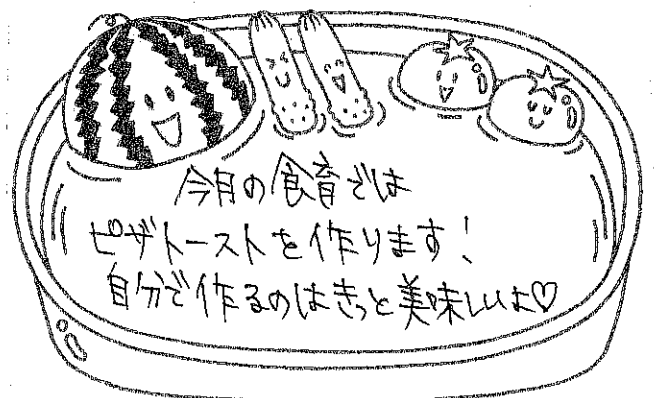 今月の食育では
ピザトーストを作ります!
自分で作るのはきっと美味しいよ♡